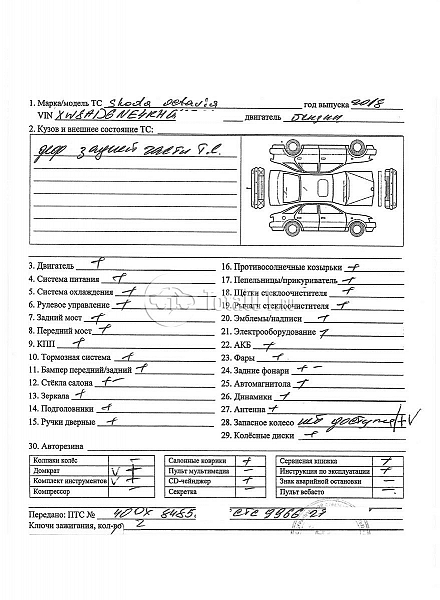 1. Марка/модель ТС Skoda octavia год выпуска 2018
VIN XW8AD6NE4KH0 двигатель бензин
2. Кузов и внешнее состояние ТС:
деф задней части т.с.
3. Двигатель +
4. Система питания +
5. Система охлаждения +
6. Рулевое управление +
7. Задний мост +
8. Передний мост +
9. КПП +
10. Тормозная система +
11. Бампер передний/задний +
12. Стёкла салона + –
13. Зеркала +
14. Подголовники +
15. Ручки дверные +
16. Противосолнечные козырьки +
17. Пепельницы/прикуриватель +
18. Щетки стеклоочистителя +
19. Рычаги стеклоочистителя +
20. Эмблемы/надписи –
21. Электрооборудование +
22. АКБ +
23. Фары +
24. Задние фонари + –
25. Автомагнитола +
26. Динамики +
27. Антенна +
28. Запасное колесо нет доступа/+V
29. Колёсные диски +
30. Авторезина
Колпаки колёс –
Домкрат V +
Комплект инструментов V +
Компрессор –
Салонные коврики +
Пульт мультимедиа –
CD-чейнджер +
Секретка –
Сервисная книжка +
Инструкция по эксплуатации +
Знак аварийной остановки –
Пульт вебасто –
Передано: ПТС № 40ОХ 8485. СТС 9966 27
Ключи зажигания, кол-во 2